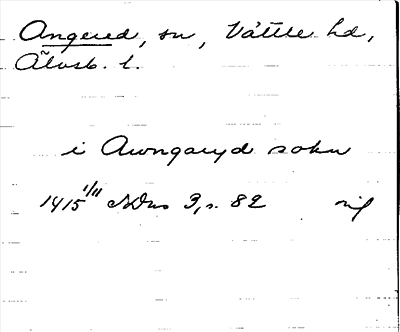 Angered, sn, Vättle hd,
Älvsb. l.
i Awngaryd sokn
1415 1/11 NDns 3, s. 82